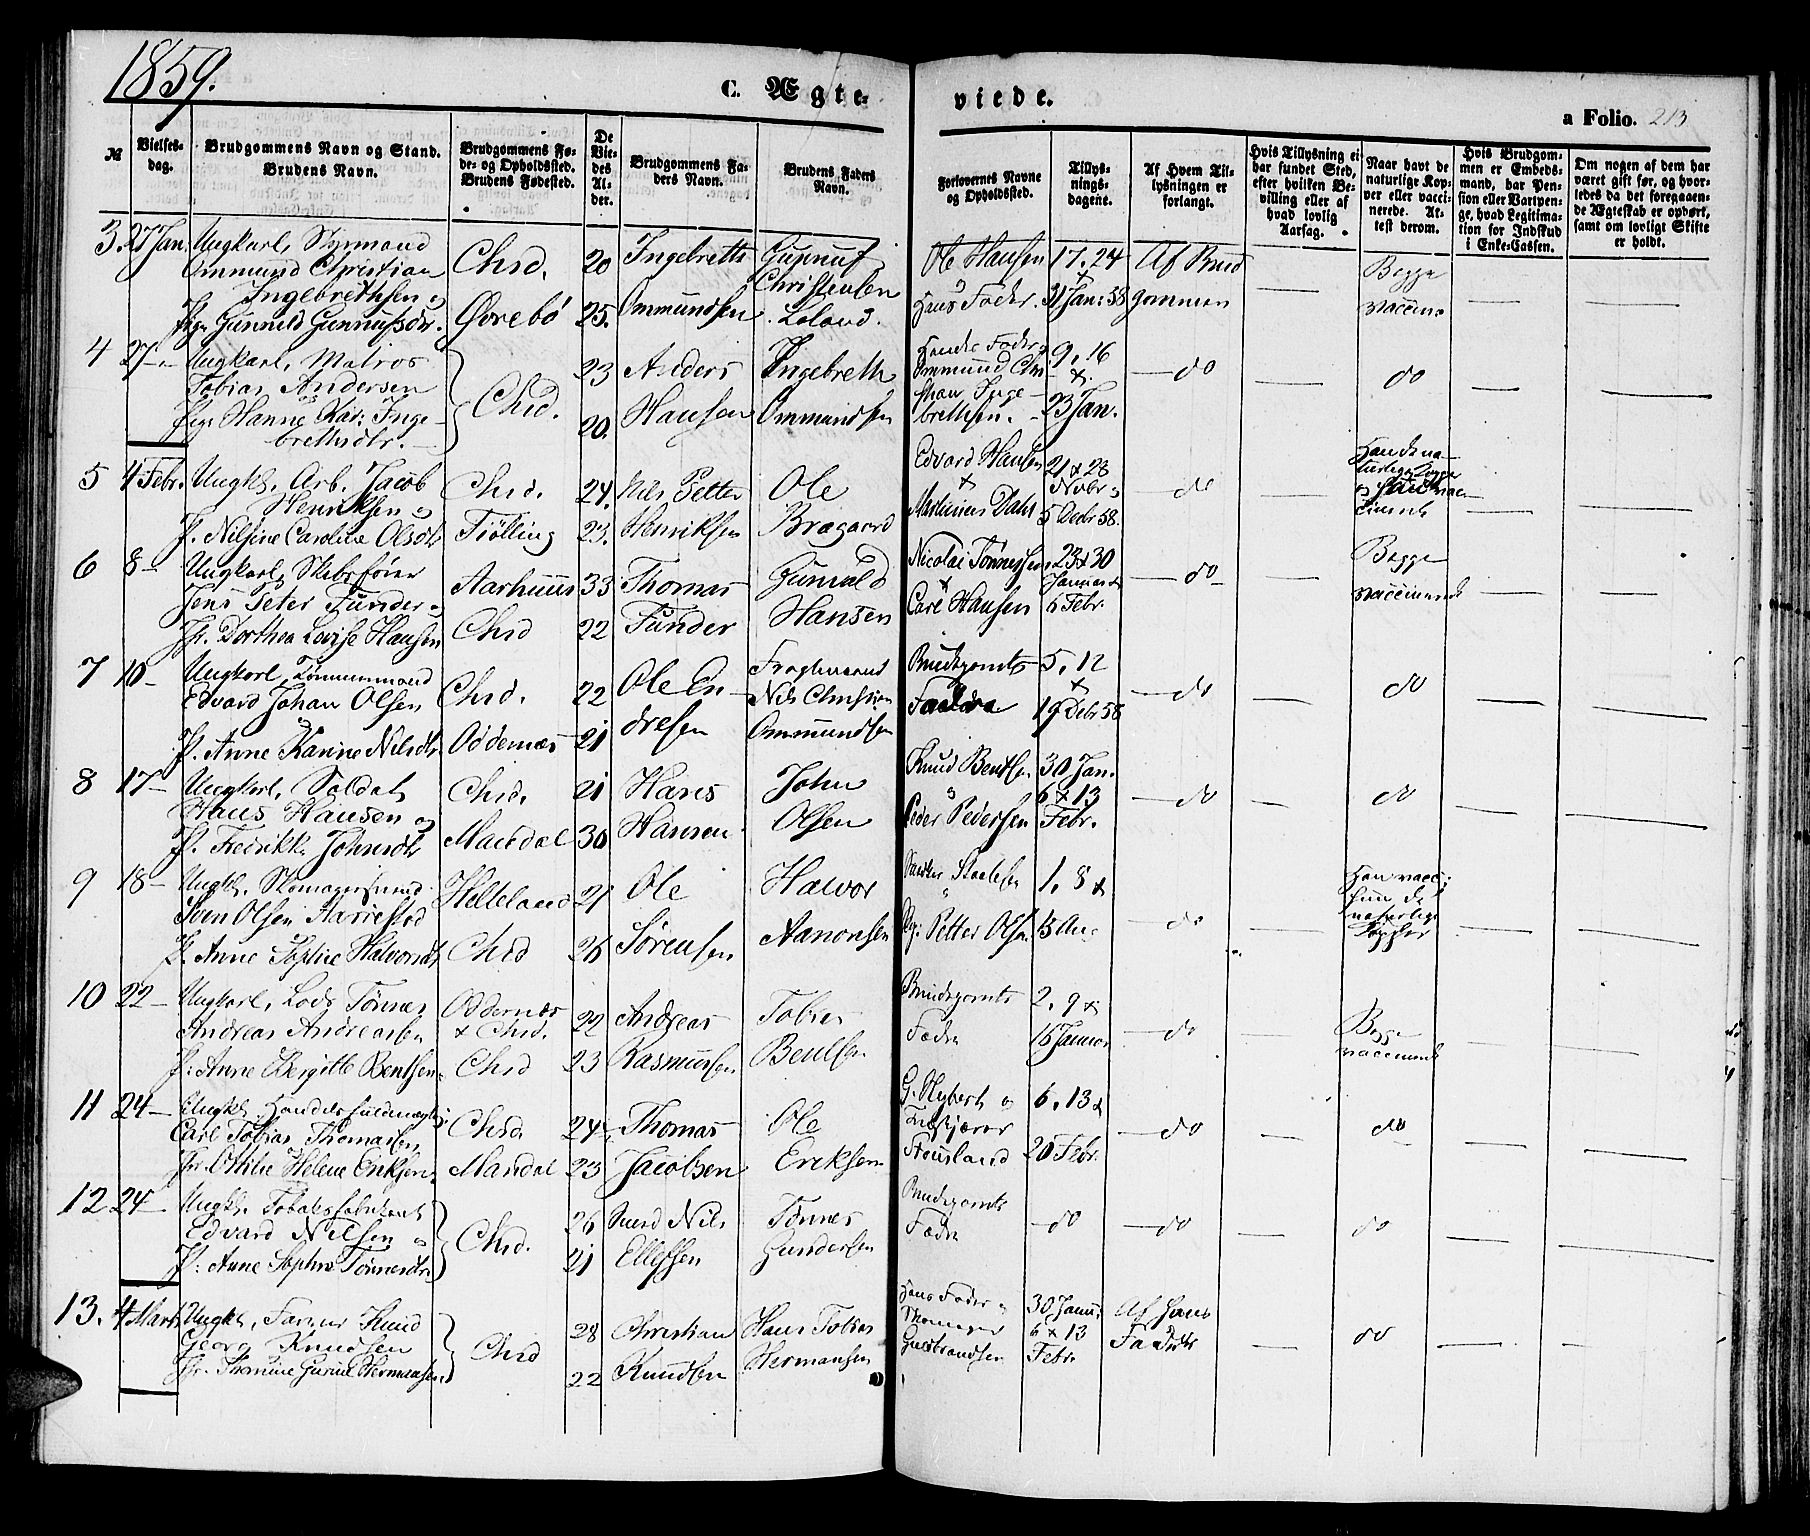 1859.
C. Ægte- viede.
a Folio. 213
№
Vielses-dag.
Brudgommens Navn og Stand. Brudens Navn.
Brudgommens Fø-de- og Opholdssted. Brudens Fødested.
De Vie-des Al-der.
Brudgommens Fa-ders Navn.
Brudens Faders Navn.
Forlovernes Navne og Opholdssted.
Tillys-nings-dagene.
Af Hvem Til-lysningen er forlangt.
Hvis Tillysning ei har fundet Sted, efter hvilken Be-villing eller af hvad lovlig Aarsag.
Naar havt de naturlige Kop-per eller vacci-nerede. At-test derom.
Hvis Brudgom-men er Embeds-mand, har Pen-sion eller Vartpen-ge, hvad Legitima-tion for Indskud i Enke-Cassen.
Om nogen af dem har været gift før, og hvor-ledes da det foregaaen-de Ægteskab er ophørt, samt om lovligt Skifte er holdt.
3. 27 Jan. Ungkarl, Styrmand
Ommund Christian
Ingebrethsen og
Pige Gunnild Gunnufsdtr.
Chsd.
Øvrebö
20
25.
Ingebreth
Ommundsen
Gunnuf
Christensen
Loland.
Ole Hansen
Hans Fader.
17. 24
31 Jan: 58
Af Brud
gommen
Begge
vaccine
4 27 Ungkarl, Matros
Tobias Andersen
Pige Hanne Kar: Inge-
brethsdtr.
Chsd.
23
20.
Anders
Hansen
Ingebreth
Ommundsen
Hendes Fader
Ommund Chri
stian Inge-
brethsen.
9. 16
23 Jan.
do
do
5 4 Febr. Ungk, Arb. Jacob
Henriksen og
P. Nilsine Caroline Olsdtr
Chsd.
Fiölling
24.
23.
Nils Petter
Henriksen
Ole
Bragaard
Edvard Hansen
Martinus Dahl
21 & 28
Novbr
5 Decbr 58.
do
6 8 Ungkarl, Skibsförer
Jens Peter Funder
Jfr. Dorthea Lovise Hansen
Aarhuus
Chsd
33
22
Thomas
Funder
Gunvald
Hansen
Nicolai Tönnessen
Carl Hansen
23 & 30
Januar &
6 Febr.
do
Begge
vaccinerede
7 10 Ungkarl, Tömmermand
Edvard Johan Olsen
P. Anne Karine Nilsdtr
Chsd.
Oddernæs
22
21
Ole En-
dresen
Nils Christian
Ommundsen
Brudgomts
Fædre
5. 12
19 Decbr 58
do
do
8 17 Ungkarl, Soldat,
Hans Hansen og
P. Fredrikke Johnsdtr
Chsd.
Mandal
21
30
Hans
Hansen
John
Olsen
Knud Bentsen
Peder Pedersen
30 Jan.
6 & 13
Febr.
do
do
9 18 Ungk, Skomagersvend
Sven Olsen Mariestad
P. Anne Sophie Halvorsdtr
Helleland
Chsd
21
26
Ole
Sörensen
Halvor
Aanonsen
Petter Olsen
1. 8 &
do
Han vacc;
hun de
naturlige
Kopper
10 22 Ungkarl, Lods Tönnes
Andreas Andreassen
P: Anne Birgitte Bentsen
Oddernæs
& Chsd.
Chsd
22
23
Andreas
Rasmussen
Tobias
Bentsen
Brudgomts
Fædre
2. 9 &
16 Januar
do
Begge
vaccinerede
11 24 Ungk, Handelsfuldmægtig
Carl Tobias Thomassen
Jfr. Othilie Helene Eriksen
Chsd
Mandal
24
23
Thomas
Jacobsen
Ole
Eriksen
G. Nybert og
6. 13 &
20 Febr.
do
do
12 24 Ungk. Tobaksfabrikant
Edvard Nilsen og
P: Anne Sophie Tönnesdtr
Chsd.
26
21
Nils
Ellefsen
Tönnes
Gundersen
Brudgomts
Fædre
do
do
do
13. 4 Marts Ungk, Farver Knud
Georg Knudsen
Jfr. Thomine Gurine Hermansen
Chsd
28
22
Christian
Knudsen
Hans Tobias
Hermansen
Hans Fader og
Gulbrandsen
30 Janu:
6 & 13
Febr
Af Hans
Fader
do